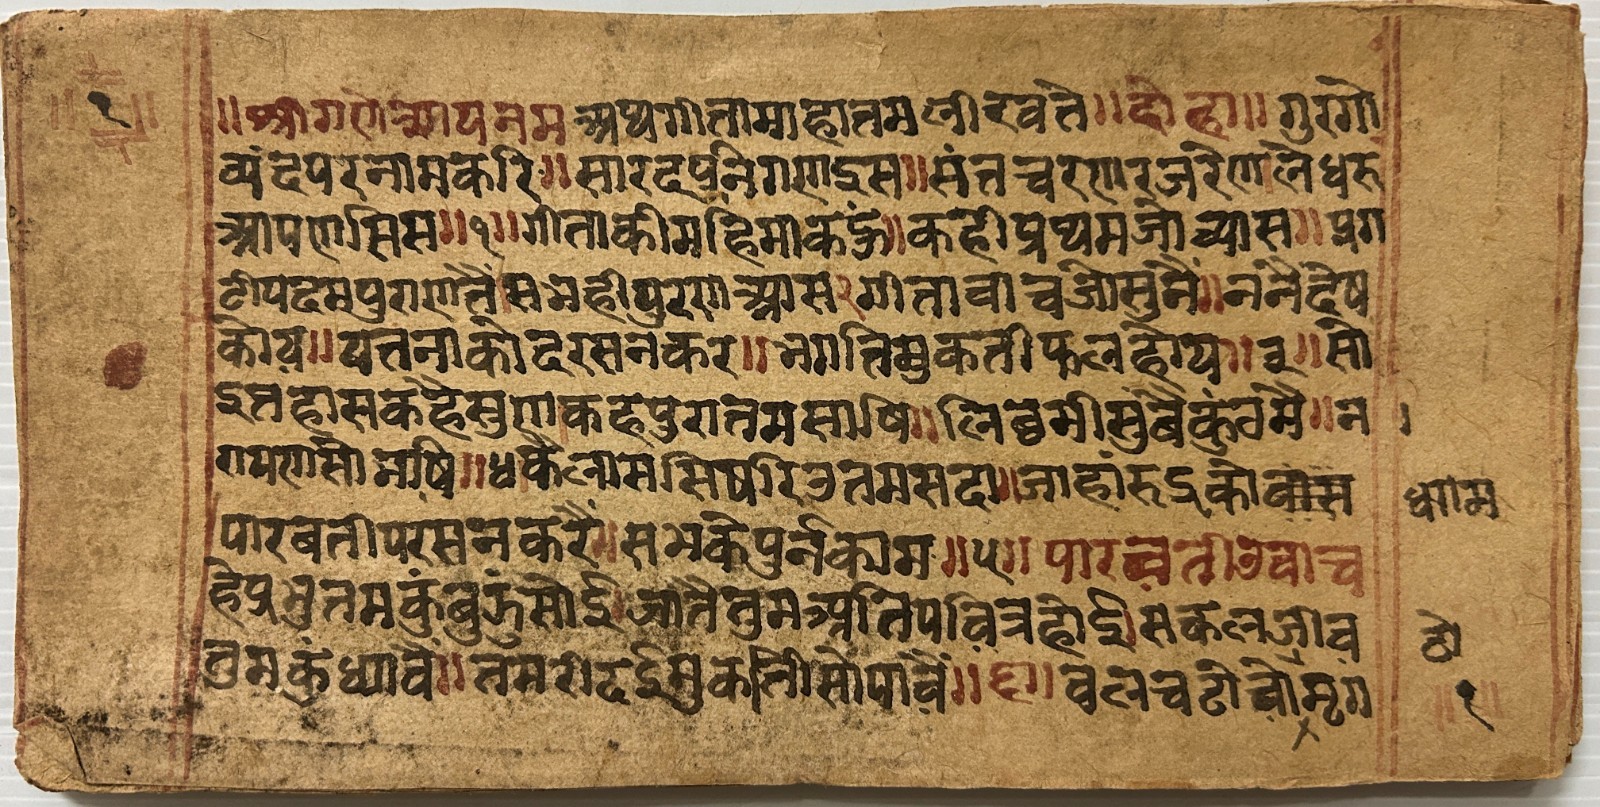 १
॥श्रीगणेस्यायनम अथगीतामाहातमलीख्वते॥दोहा॥गुरगो
व्यंदपरनामकरि॥सारदपुनिगणइस॥संतचरणरजरेणलैधरु
आपणसिस॥१॥गीताकीमहिमाकऊं॥कहीप्रथमजोव्यास॥प्रग
टीपदमपुराणतैं॥सभहीपुरणआस२गीतावाचओसुनै॥ननैदेष
कोय॥यतनाकोदरसनकर॥भगतिमुकतीफलहोय॥३॥सो
इतहासकहैसुणकहपुरातमसाषि॥लिछमीसुंबैकुंठमै॥न
रायणसौभाषि॥४कैलाससिषरिउतमसदा॥जाहांरुद्रकोवास
पारबतीपरसनकरै॥सभकेपुर्नकाम॥५॥पारबतीउवाच
हेप्रभुतमकुंबुऊंसोई॥जातैतुमअतिपवित्रहोई॥सकलजीव
तुमकुंध्यावै॥तमरीदईमुकतिसोपावै॥६॥वलचटीवोमृग
धाम
ठो
१